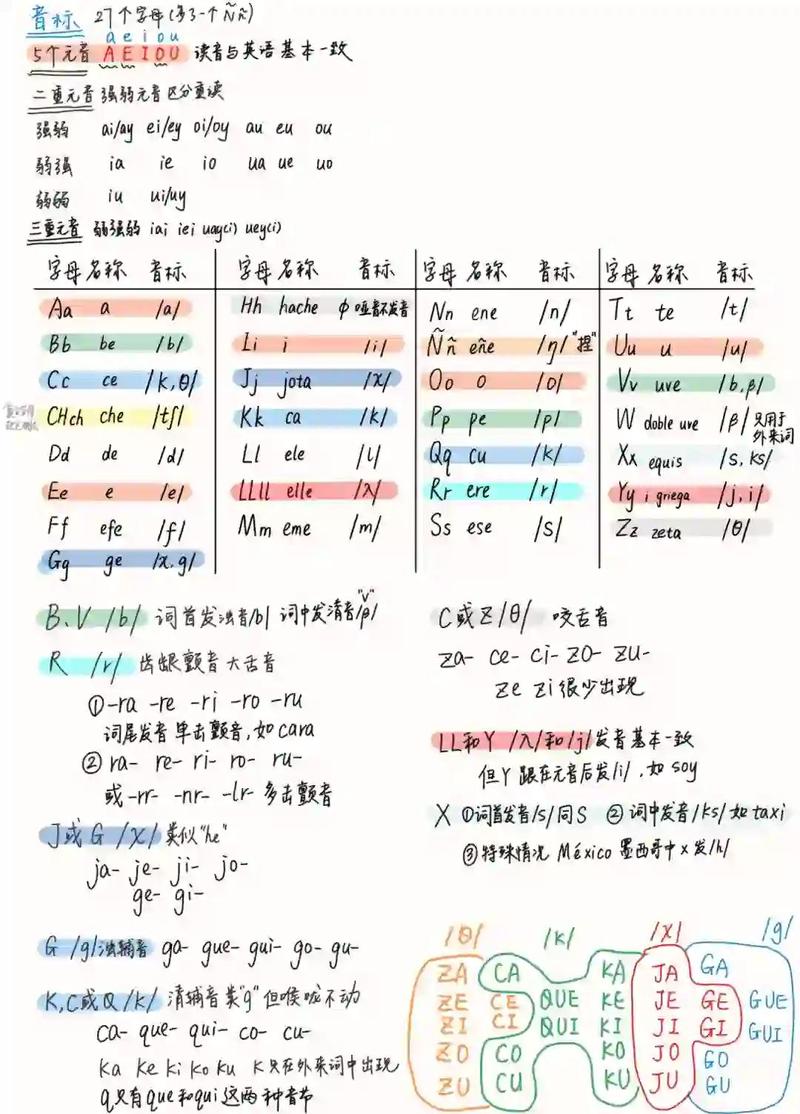 音标 27个字母(多了一个Ññ)
a e i o u
5个元音 A E I O U 读音与英语基本一致
二重元音 强弱元音区分重读
强弱 ai/ay ei/ey oi/oy au eu ou
弱强 ia ie io ua ue uo
弱弱 iu ui/uy
三重元音 弱强弱 iai iei uay(i) uey(i)
字母 名称 音标
Aa a /a/
Bb be /b/
Cc ce /k,θ/
CHch che /tʃ/
Dd de /d/
Ee e /e/
Ff efe /f/
Gg ge /x,g/
字母 名称 音标
Hh hache ϕ 哑音不发音
Ii i /i/
Jj jota /x/
Kk ca /k/
Ll ele /l/
LLll elle /λ/
Mm eme /m/
字母 名称 音标
Nn ene /n/
Ññ eñe /ŋ/ "捏"
Oo o /o/
Pp pe /p/
Qq cu /k/
Rr ere /r/
Ss ese /s/
字母 名称 音标
Tt te /t/
Uu u /u/
Vv uve /b,β/
W doble uve /β/ 只用于外来词
Xx equis /s,ks/
Yy i griega /j,i/
Zz zeta /θ/
B、V /b/ 词首发浊音/b/ 词中发清音/β/ "V"
R /r/ 齿龈颤音 大舌音
①-ra -re -ri -ro -ru
词尾发音 单击颤音,如cara
② ra- re- ri- ro- ru-
或-rr- -nr- -lr- 多击颤音
J或G /x/ 类似"he"
ja- je- ji- jo-
ge- gi-
G /g/浊辅音 ga- gue- gui- go- gu-
K,C或Q /k/ 清辅音类"g"但喉咙不动
ca- que- qui- co- cu-
ka ke ki ko ku K只在外来词中出现
q只有que和qui这两种音节
C或Z /θ/ 咬舌音
za- ce- ci- zo- zu-
ze zi 很少出现
LL和Y /λ/和/j/发音基本一致
但Y跟在元音后发/i/,如soy
X ①词首发音/s/同S ②词中发音/ks/如taxi
③特殊情况 México 墨西哥中x发/h/
/θ/ /k/ /x/ /g/
ZA CA KA JA GA
ZE CE QUE KE JE GE GUE
ZI CI QUI KI JI GI GUI
ZO CO KO JO GO
ZU CU KU JU GU